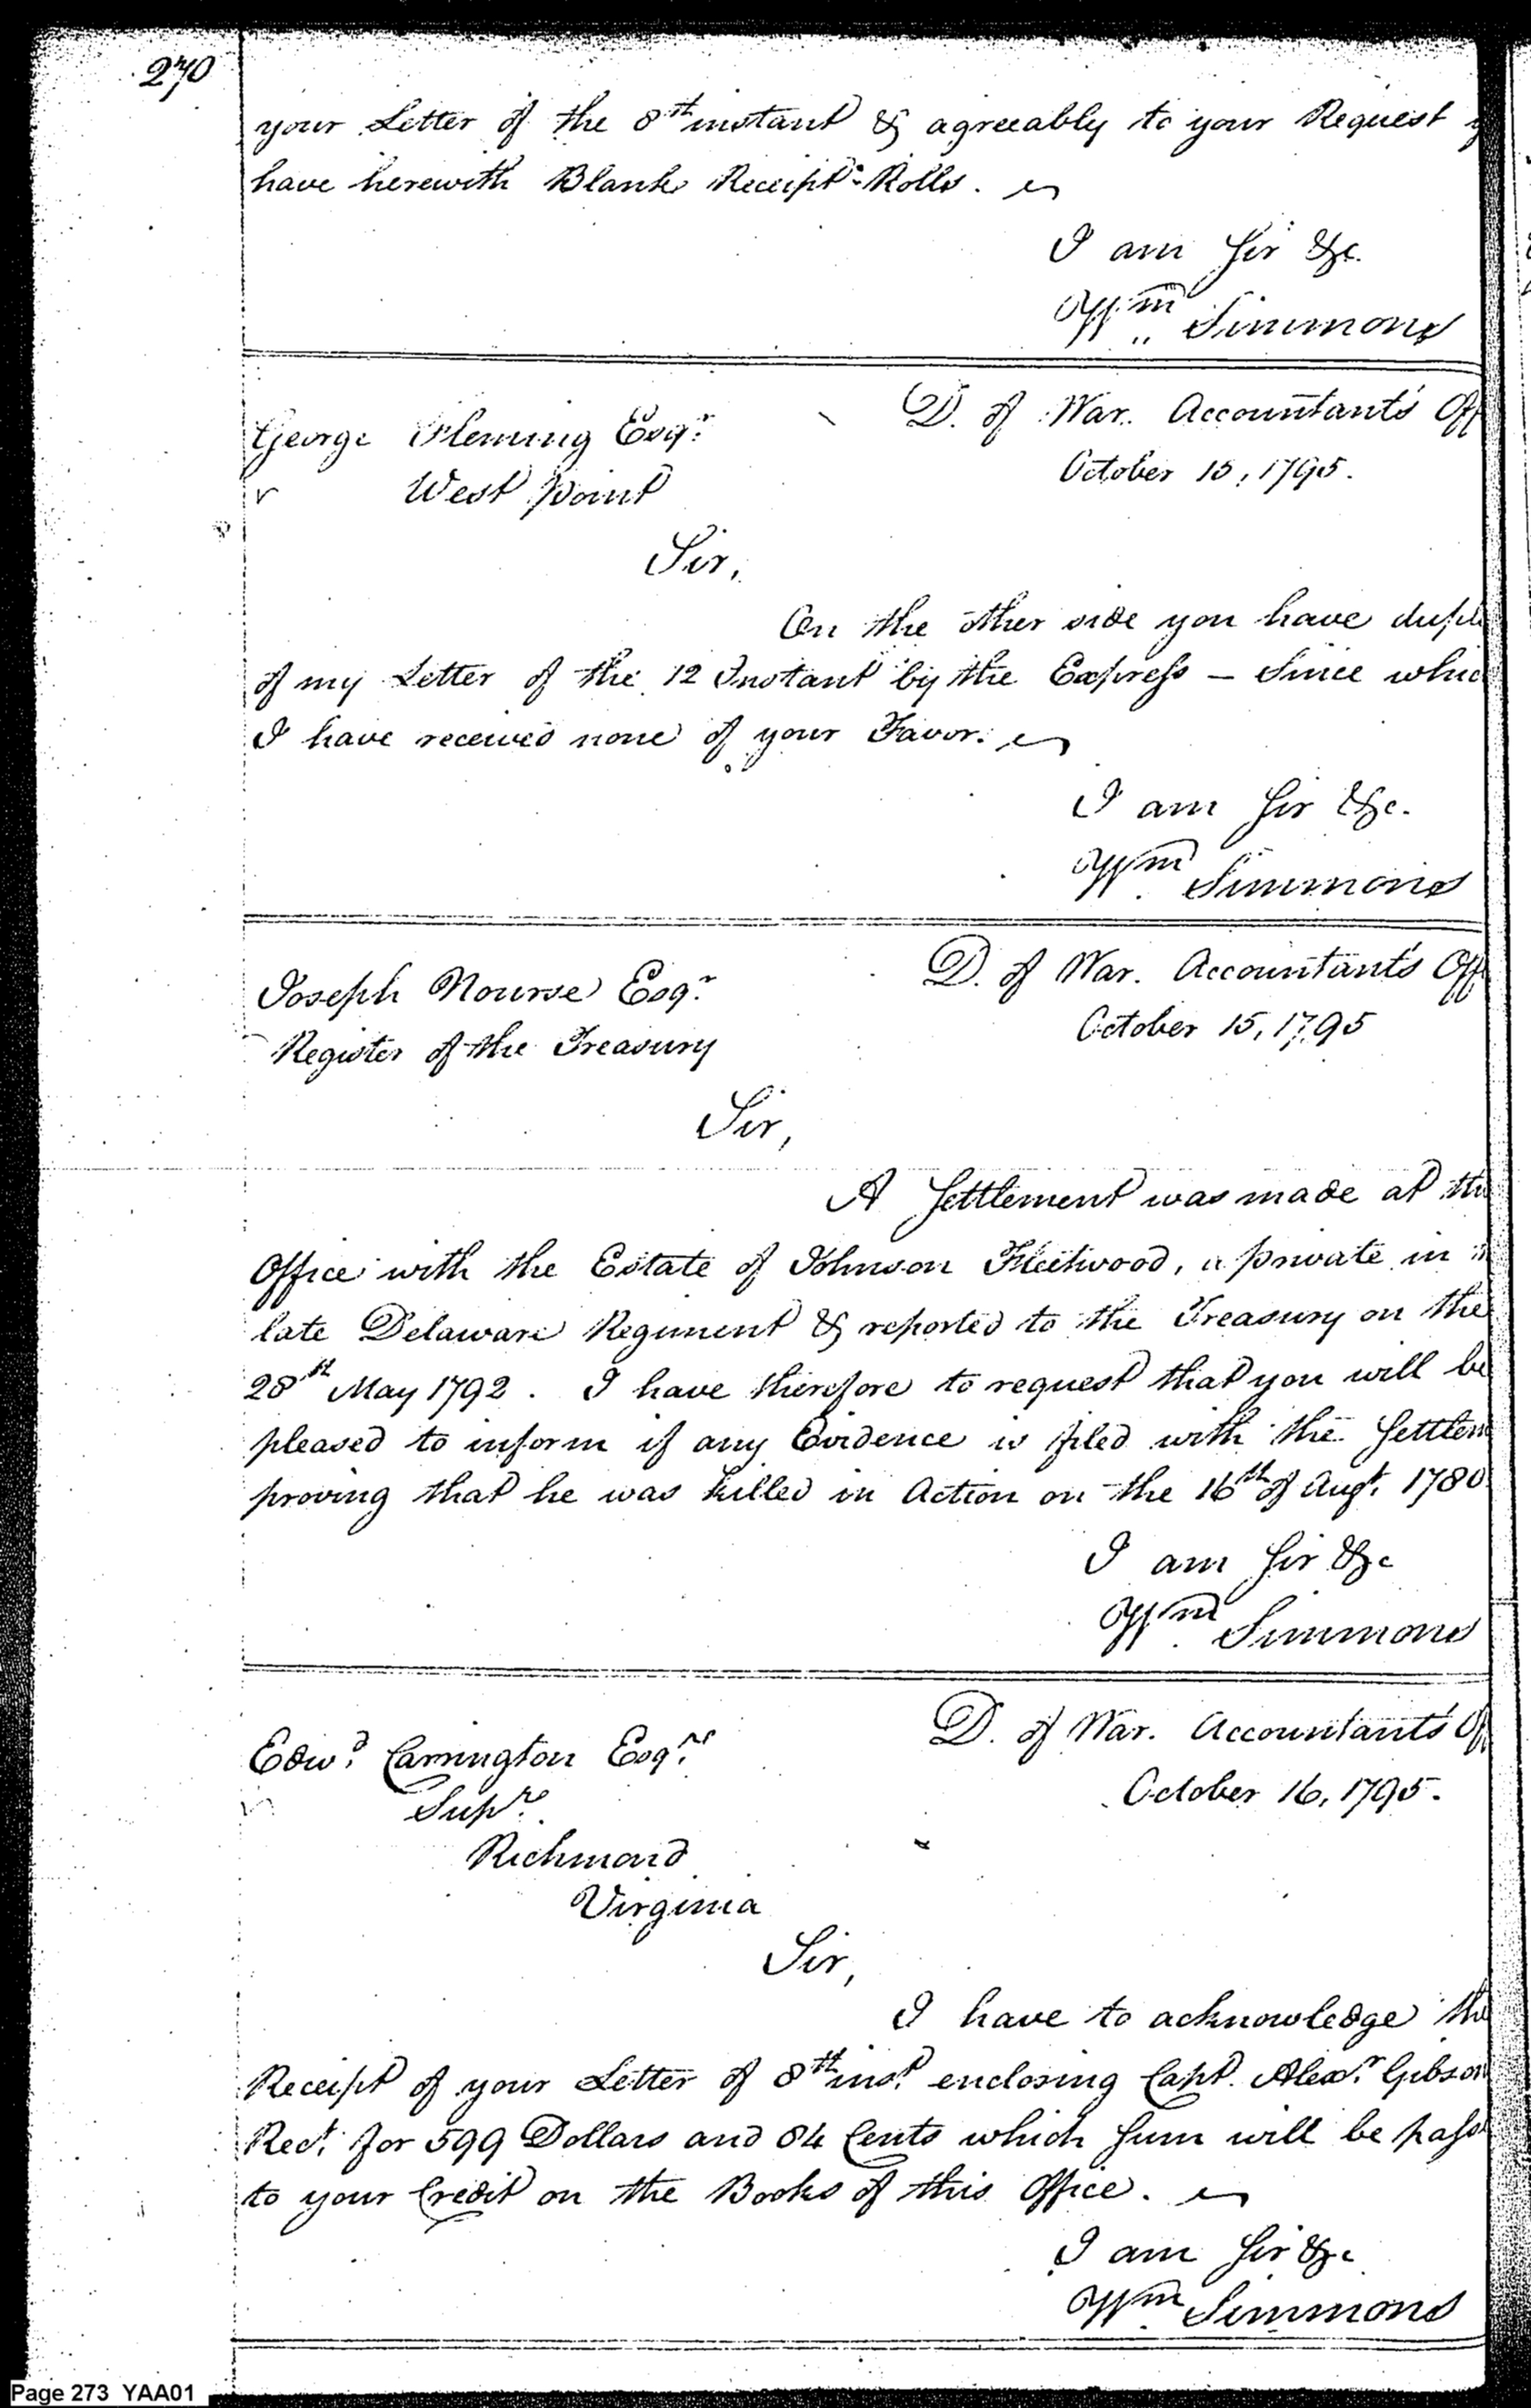 270
your Letter of the 8th instant & agreeably to your Request y
have herewith Blank Receipt Rolls.
I am Sir &c.
Wm Simmons
George Fleming Esqr.
D. of War. Accountants Off
West Point
October 15, 1795.
Sir,
On the other side you have dupl
of my Letter of the 12 Instant by the Express – Since whic
I have received none of your Favor.
I am Sir &c.
Wm Simmons
Joseph Nourse Esqr.
D. of War. Accountants Off
Register of the Treasury
October 15, 1795
Sir,
A Settlement was made at the
Office with the Estate of Johnson Fleetwood, a private in
late Delaware Regiment & reported to the Treasury on the
28th May 1792. I have therefore to request that you will be
pleased to inform if any Evidence is filed with the Settlem
proving that he was killed in Action on the 16th of Augt. 1780
I am Sir &c
Wm Simmons
Edwd. Carrington Esqr.
D. of War. Accountants Of
Supr.
October 16, 1795.
Richmond
Virginia
Sir,
I have to acknowledge the
Receipt of your Letter of 8th inst. enclosing Capt. Alexr. Gibson
Rect. for 599 Dollars and 84 Cents which Sum will be pass
to your Credit on the Books of this Office.
I am Sir &c
Wm Simmons
Page 273 YAA01